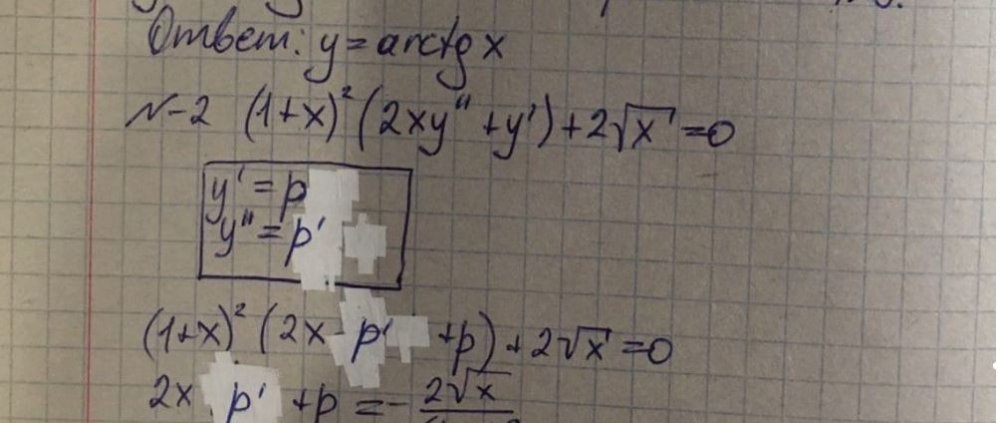 Ответ: y = arctg x
N-2 (1+x)² (2xy'' + y') + 2√x = 0
y' = p
y'' = p'
(1+x)² (2x p' + p) + 2√x = 0
2x p' + p = - 2√x